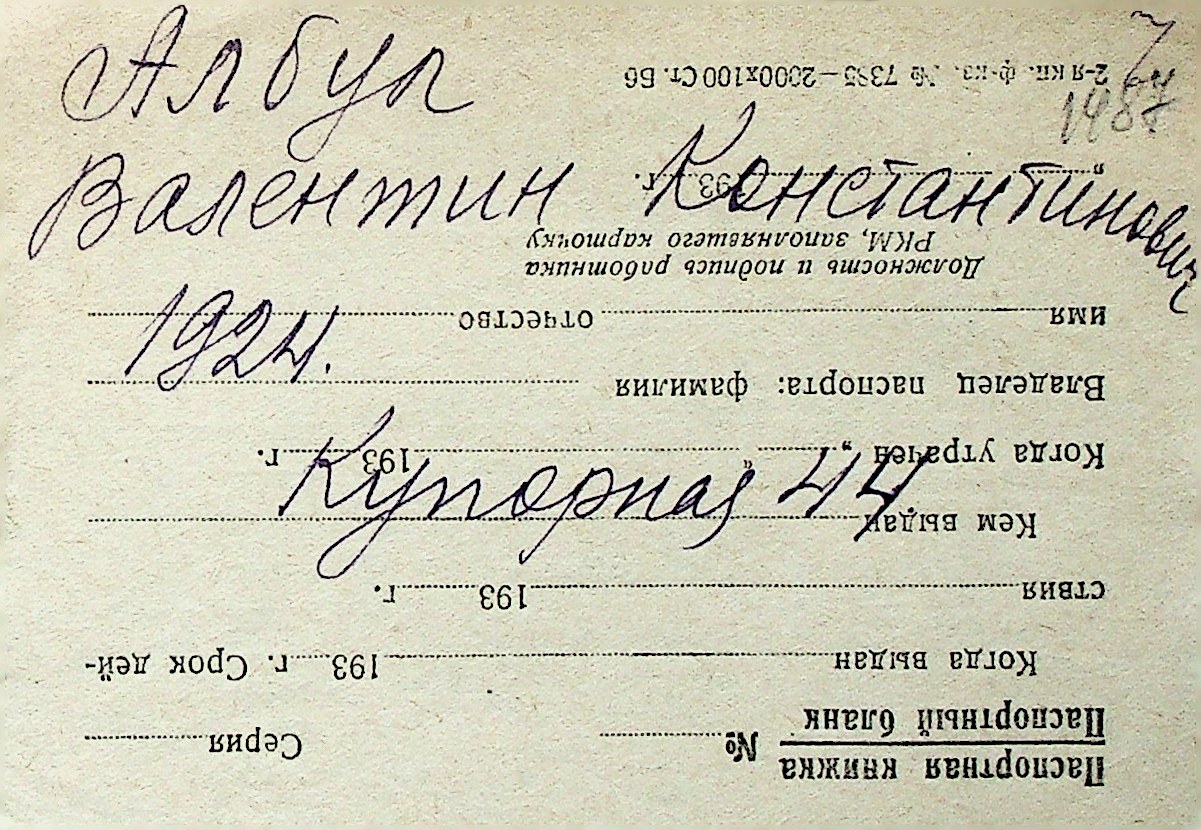 Албул
Валентин Константинович
1924.
Купорная 44
7
67
1987
Паспортная книжка
Паспортный бланк
№ Серия
Когда выдан 193 г. Срок дей-
ствия 193 г.
Кем выдан
Когда утрачен „ “ 193 г.
Владелец паспорта: фамилия
имя отчество
Должность и подпись работника
РКМ, заполнявшего карточку
„ 193 г.
2-я кн. ф-ка. № 7385—2000x100 Ст. Бб